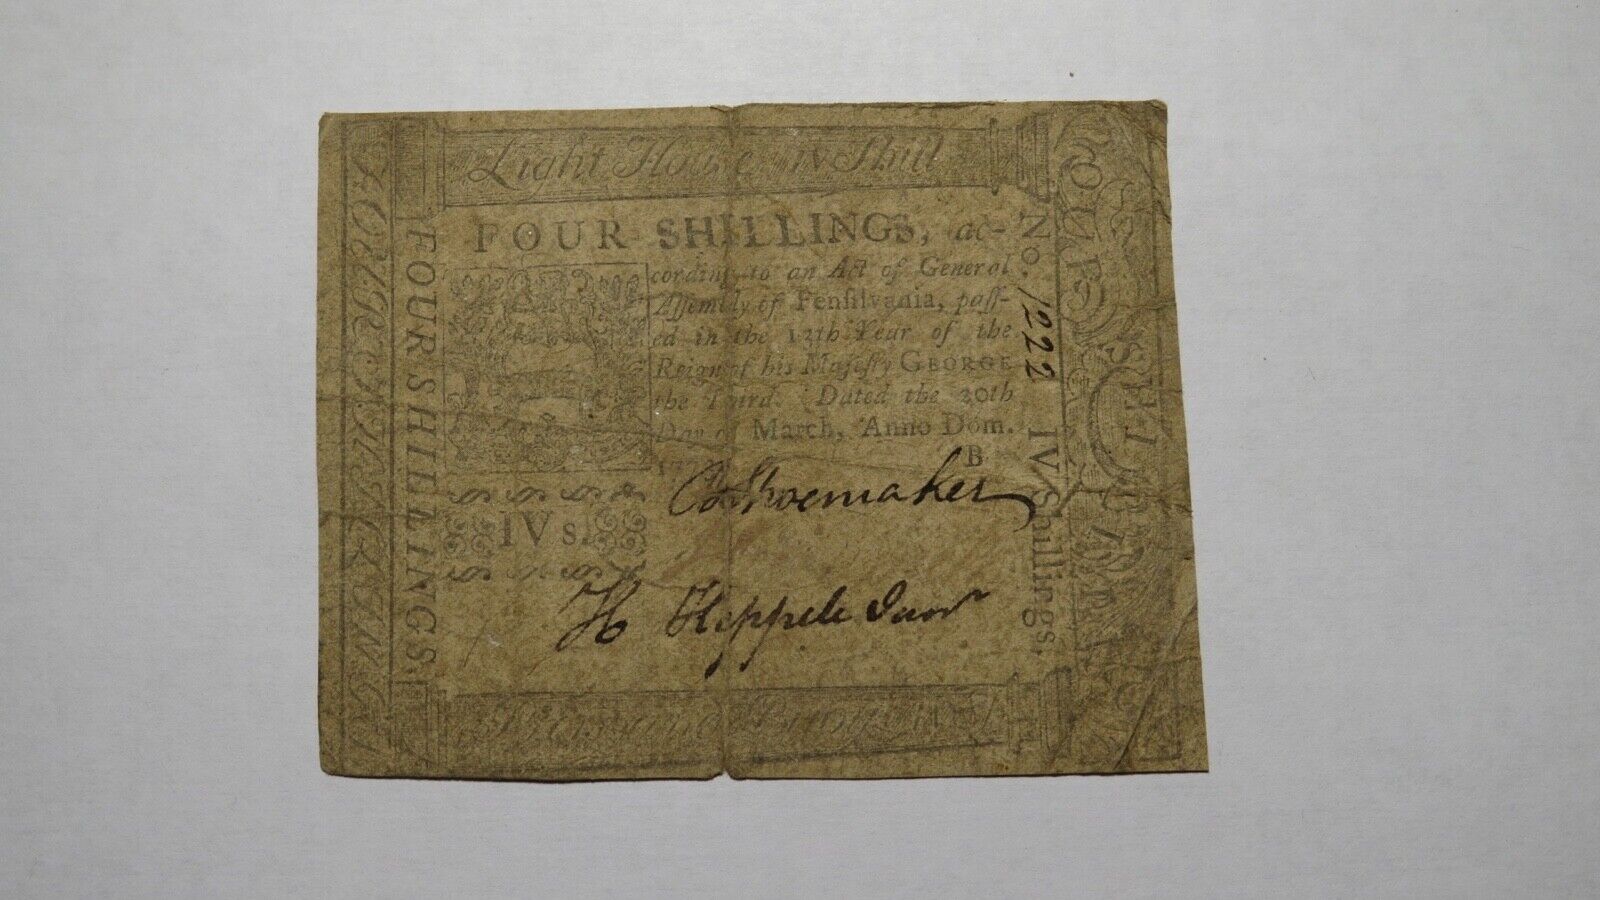 Light House IV Shill
FOUR SHILLINGS, ac-
cording to an Act of General
Assembly of Pensilvania, pass-
ed in the 12th Year of the
Reign of his Majesty GEORGE
the Third. Dated the 20th
Day of March, Anno Dom.
B
IVs.
Shoemaker
H Keppele Junr
FOUR SHILLINGS.
No. 1222 IV Shillings.